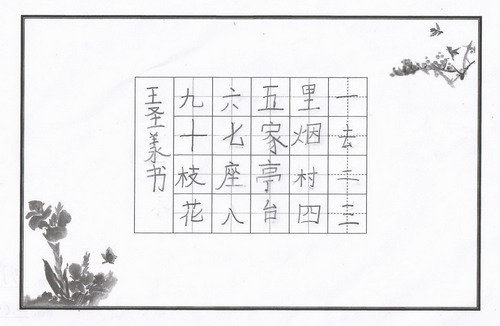 一去二三
里烟村四
五家亭台
六七座八
九十枝花
王圣美书